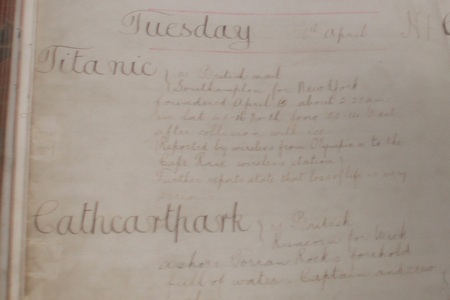 Tuesday April
Titanic } British mail
Southampton for New York
foundered April 15 about 2 20 am
in Lat North Long West
after collision with ice
Reported by wireless from Olympic to the
Cape Race wireless station
Further reports state that loss of life is very
Cathcartpark } British
Runcorn for Wick
ashore Torean Rocks forehold
full of water. Captain and crew